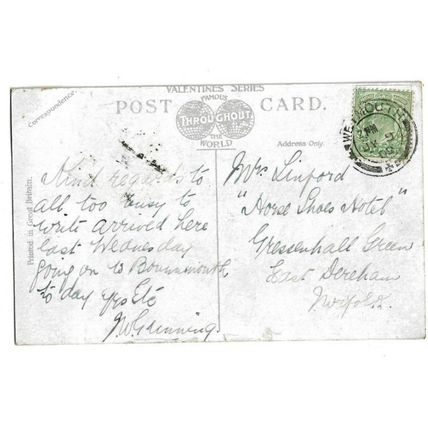 VALENTINES SERIES
FAMOUS
POST CARD.
THROUGHOUT
THE
WORLD
Correspondence.
Address Only.
Printed in Great Britain.
WEYMOUTH
Kind regards to
all too busy to
write arrived here
last Wednesday
going on to Bournemouth
to day yrs Etc
Mrs Linford
"Horse Shoes Hotel"
Gressenhall Green
East Dereham
Norfolk.